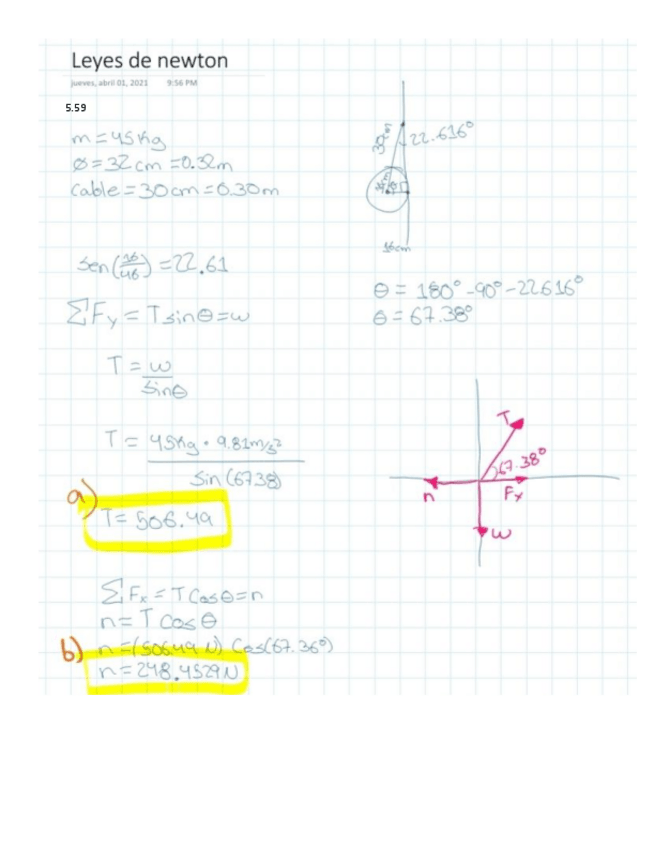 Leyes de newton
jueves, abril 01, 2021 9:56 PM
5.59
m = 45 Kg
Ø = 32 cm = 0.32m
Cable = 30cm = 0.30m
30cm
22.616°
16cm
Sen(16/46) = 22.61
ΣFy = T sinθ = w
θ = 180° - 90° - 22.616°
θ = 67.38°
T = w/sinθ
T = 45Kg • 9.81m/s²
Sin (67.38)
a)
T = 506.49
T
67.38°
n
Fx
w
ΣFx = T Cosθ = n
n = T Cos θ
b) n = (506.49 N) Cos(67.36°)
n = 248.4529 N